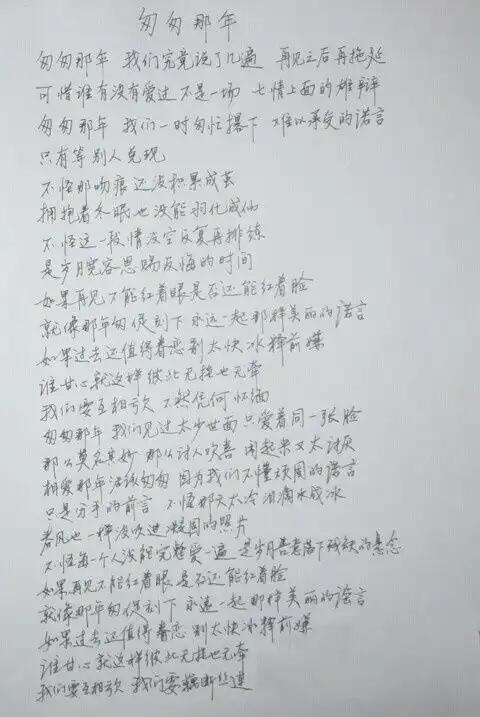 匆匆那年
匆匆那年 我们究竟说了几遍 再见之后再拖延
可惜谁有没有爱过不是一场 七情上面的雄辩
匆匆那年 我们一时匆忙撂下 难以承受的诺言
只有等别人兑现
不怪那吻痕还没积累成茧
拥抱着冬眠也没能羽化成仙
不怪这一段情没空反复再排练
是岁月宽容恩赐反悔的时间
如果再见不能红着眼是否还能红着脸
就像那年匆促刻下永远一起那样美丽的谣言
如果过去还值得眷恋别太快冰释前嫌
谁甘心就这样彼此无挂也无牵
我们要互相亏欠 不然凭何怀缅
匆匆那年 我们见过太少世面只爱看同一张脸
那么莫名其妙 那么讨人欢喜 闹起来又太讨厌
相爱那年活该匆匆 因为我们不懂顽固的诺言
只是分手的前言 不怪那天太冷泪滴水成冰
春风也一样没吹进凝固的照片
不怪每一个人没能完整爱一遍 是岁月善意落下残缺的悬念
如果再见不能红着眼 是否还能红着脸
就像那年匆促刻下 永远一起那样美丽的谣言
如果过去还值得眷恋 别太快冰释前嫌
谁甘心就这样彼此无挂也无牵
我们要互相欠 我们要藕断丝连